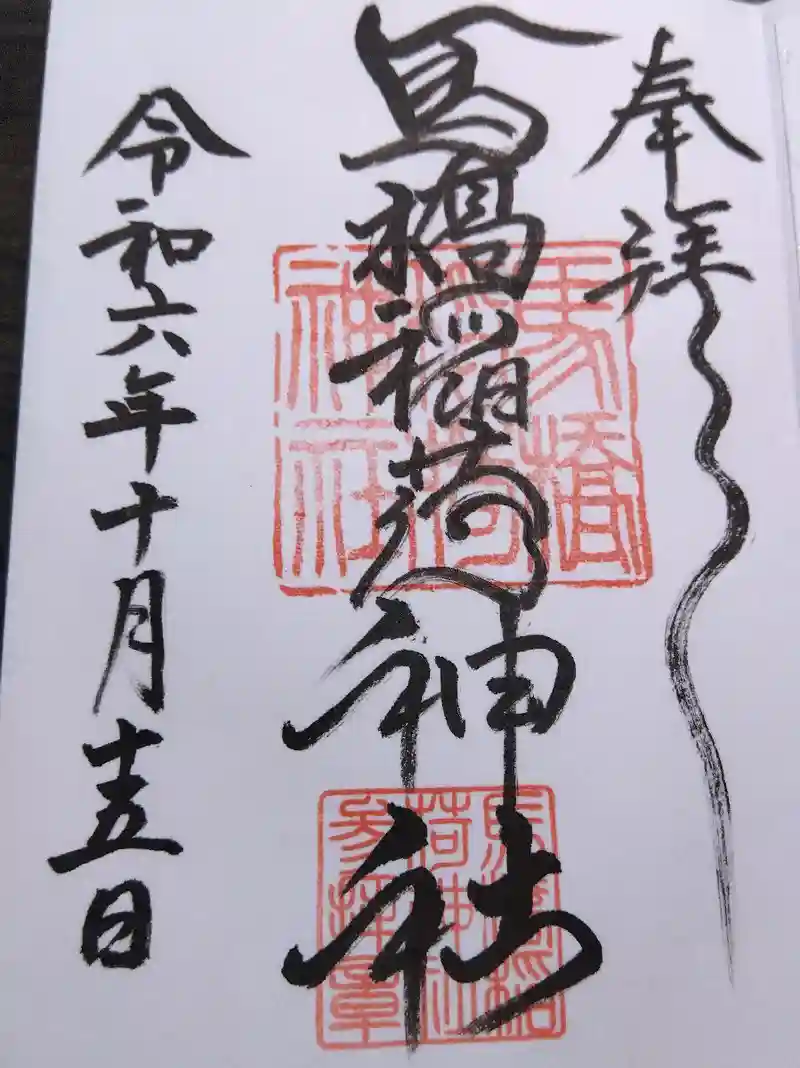 奉拝
馬橋稲荷神社
馬橋稲荷神社
馬橋稲荷神社参拝章
令和六年十月十五日